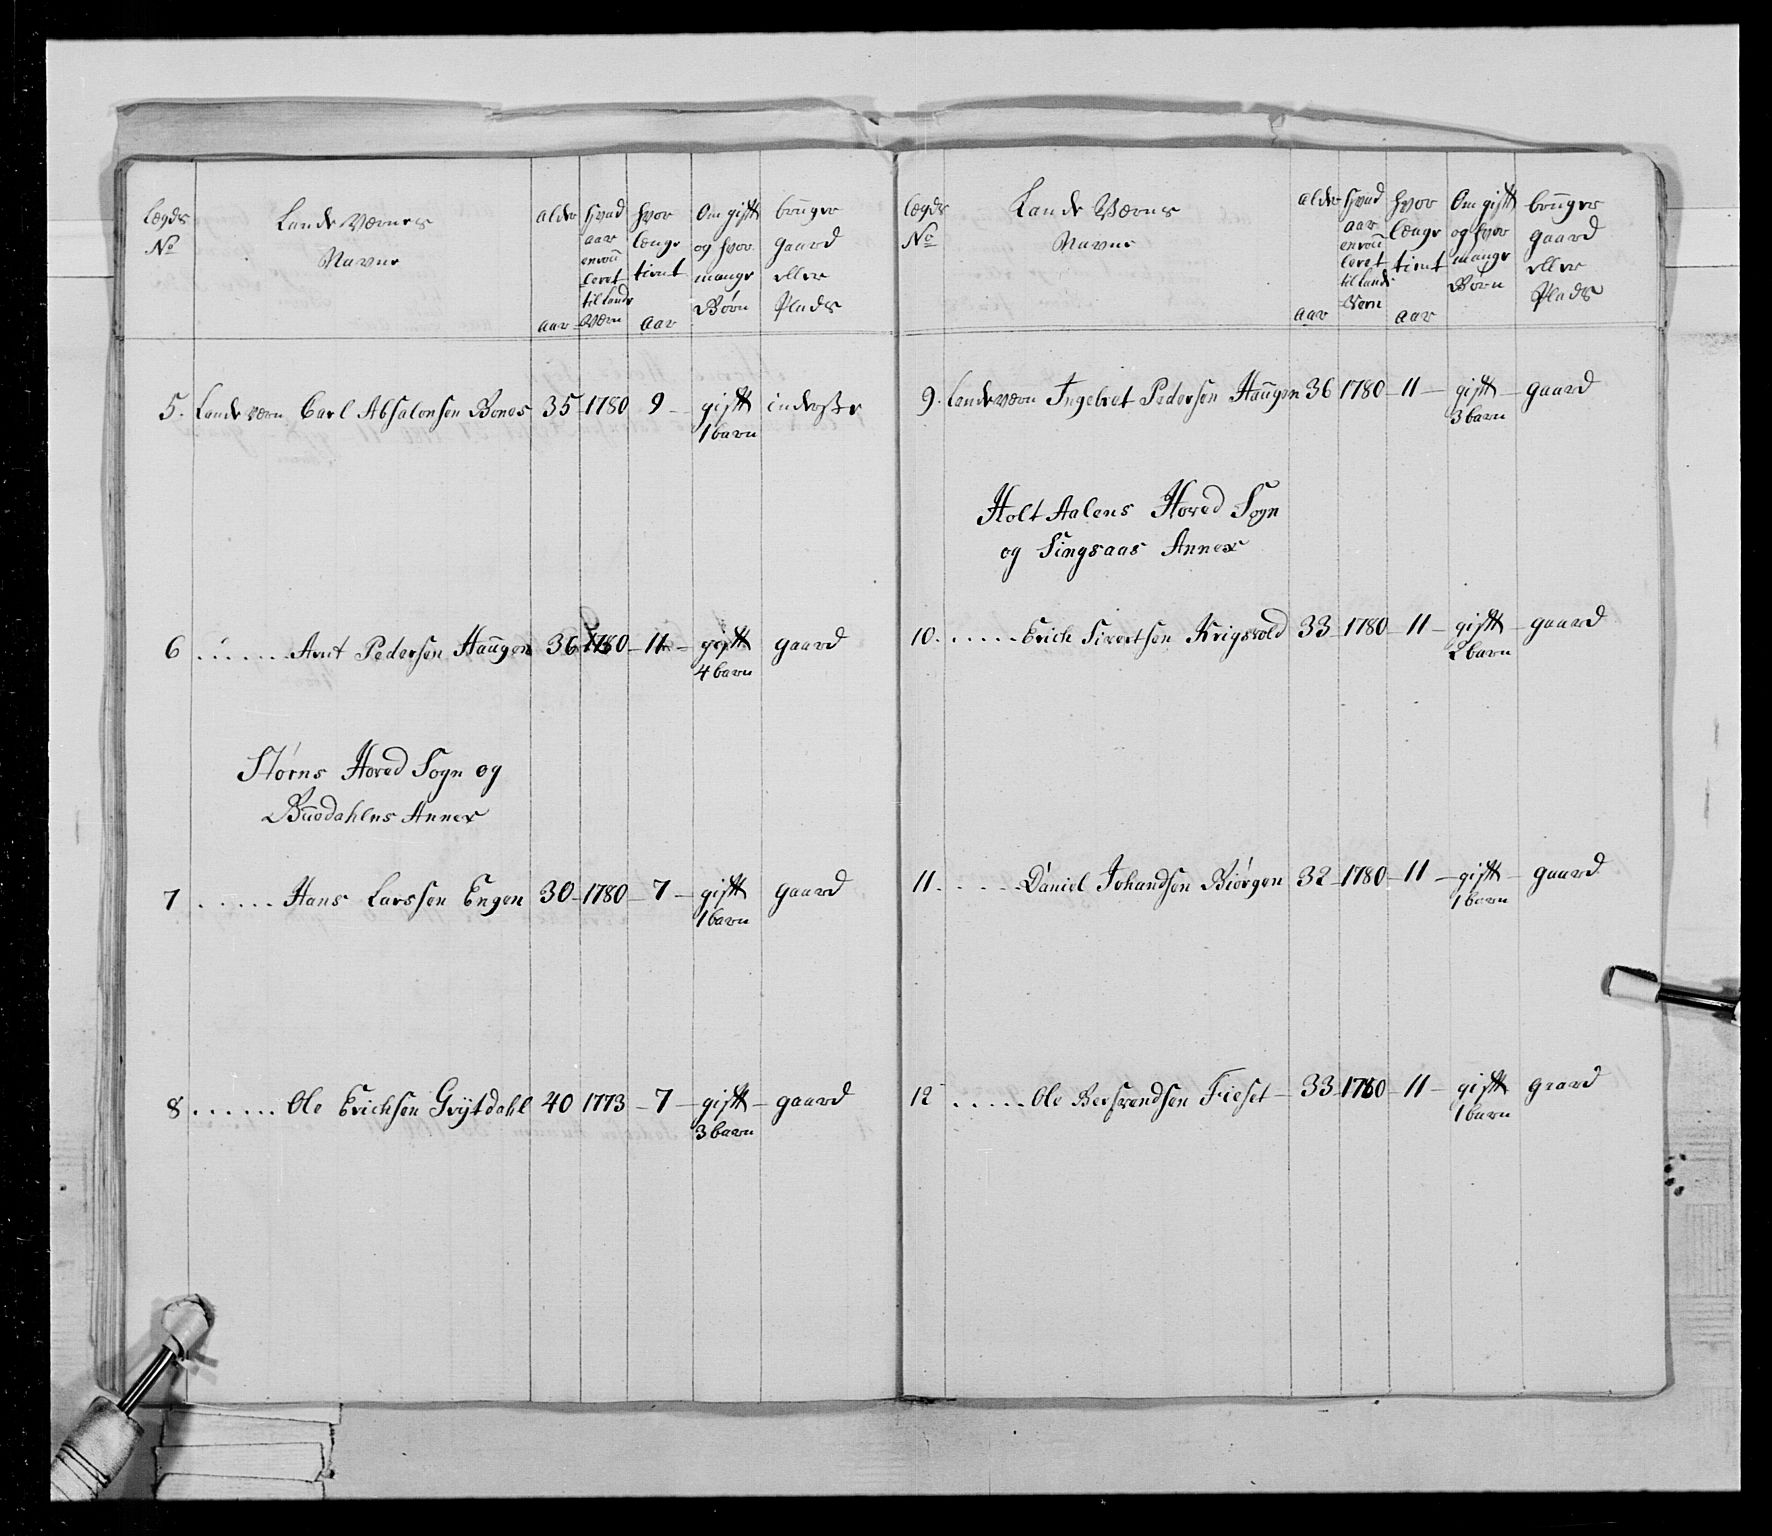 Lægds
No
Lande Værnes
Navne
alder
aar
hvad
aar
enroul
leret
til Lands
Værn
hvor
længe
tient
aar
Om gift
og hvor
mange
Børn
bruger
gaard
eller
Plads
5. Lande værn Carl Absalonsen Bones 35 - 1780 9 - gift inderste
1 barn
6 ...... Arnt Pedersen Haugen 36 1780 - 11 - gift gaard
4 barn
Størns Hoved Sogn og
Buddahlns Annex
7 ..... Hans Larssen Engen 30 - 1780 - 7 - gift gaard
1 barn
8 ...... Ole Erichsen Grytdahl 40 1773 - 7 - gift - gaard
3 barn
Lægds
No
Lande Værns
Navne
alder
aar
hvad
aar
enroul
leret
til Lands
Vern
hvor
længe
tient
aar
Om gift
og hvor
mange
Børn
bruger
gaard
eller
Plads
9. Lande værn Ingebret Pedersen Haugen 36 1780 - 11 - gift - gaard
3 barn
Holt Aalens Hoved Sogn
og Singsaas Annex
10. ..... Erich Sivertsen Krigsvold 33 - 1780 - 11 - gift - gaard
2 barn
11. .... Daniel Johandsen Biørgen 32 - 1780 - 11 - gift - gaard
1 barn
12 ..... Ole Bersvendsen Fieset - 33 - 1780 - 11 - gift gaard
1 barn